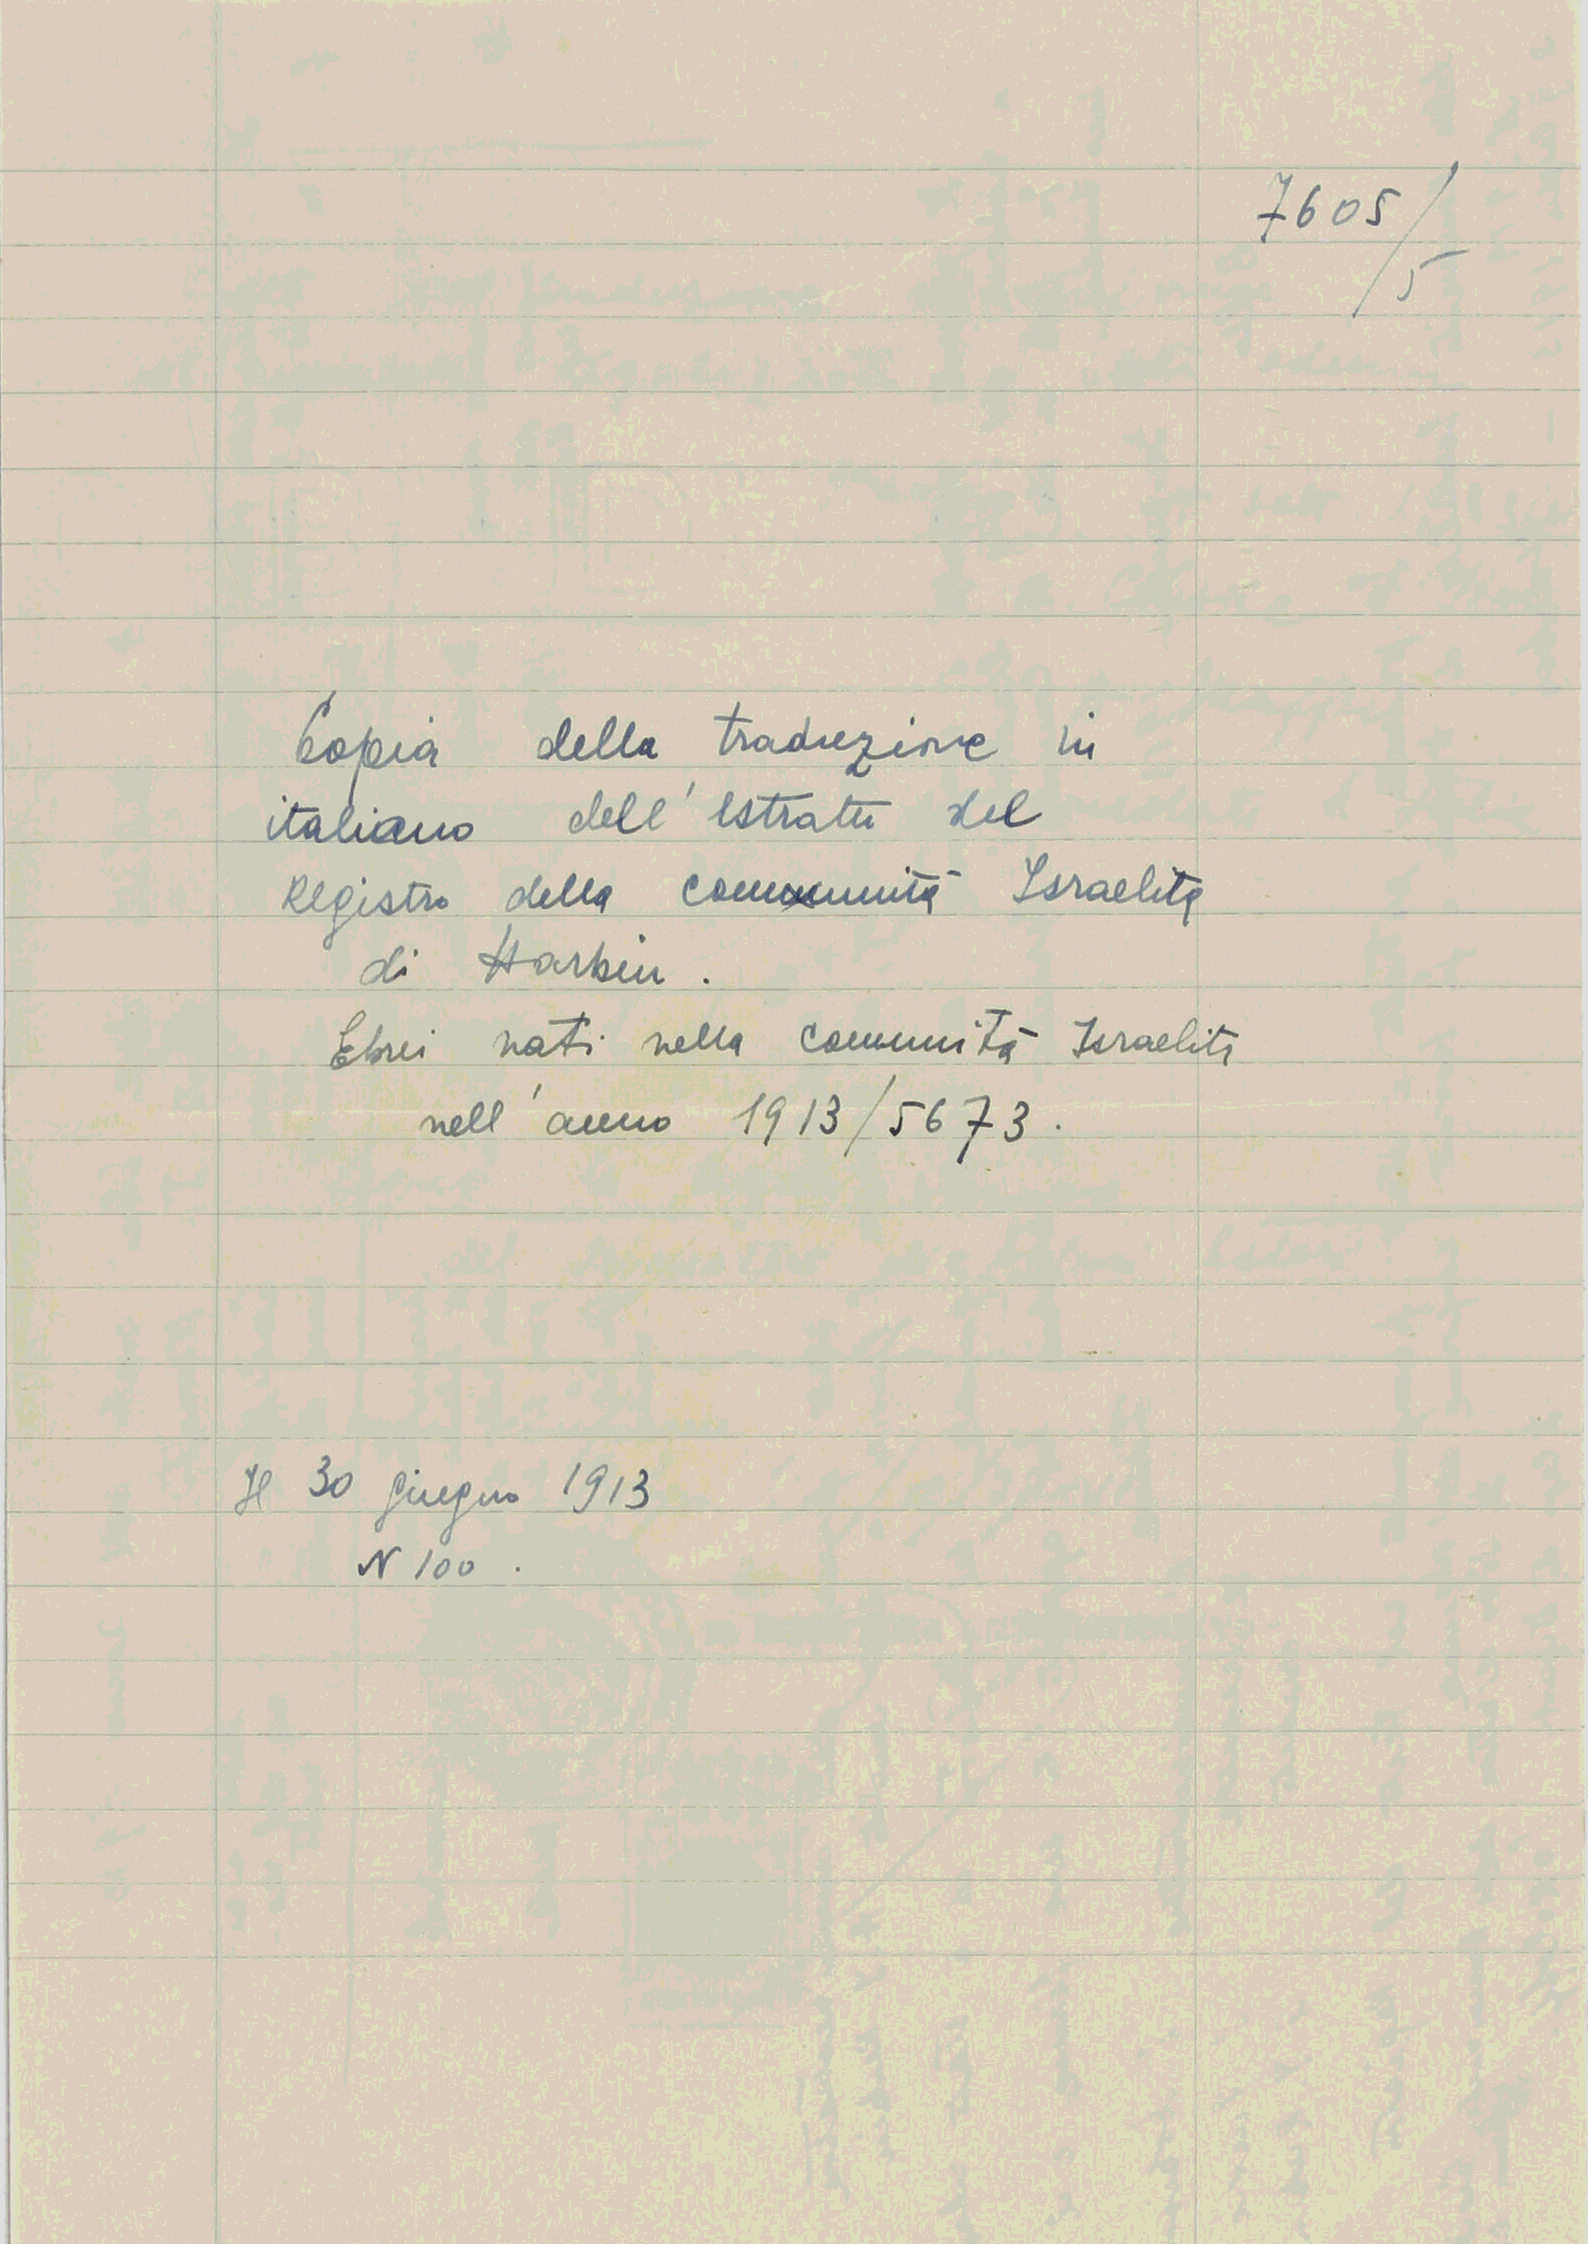 7605/5
Copia della traduzione in
italiano dell'estratto del
Registro della comunità Israelita
di Harbin.
Ebrei nati nella comunità Israelita
nell'anno 1913/5673.
Il 30 giugno 1913
N 100.